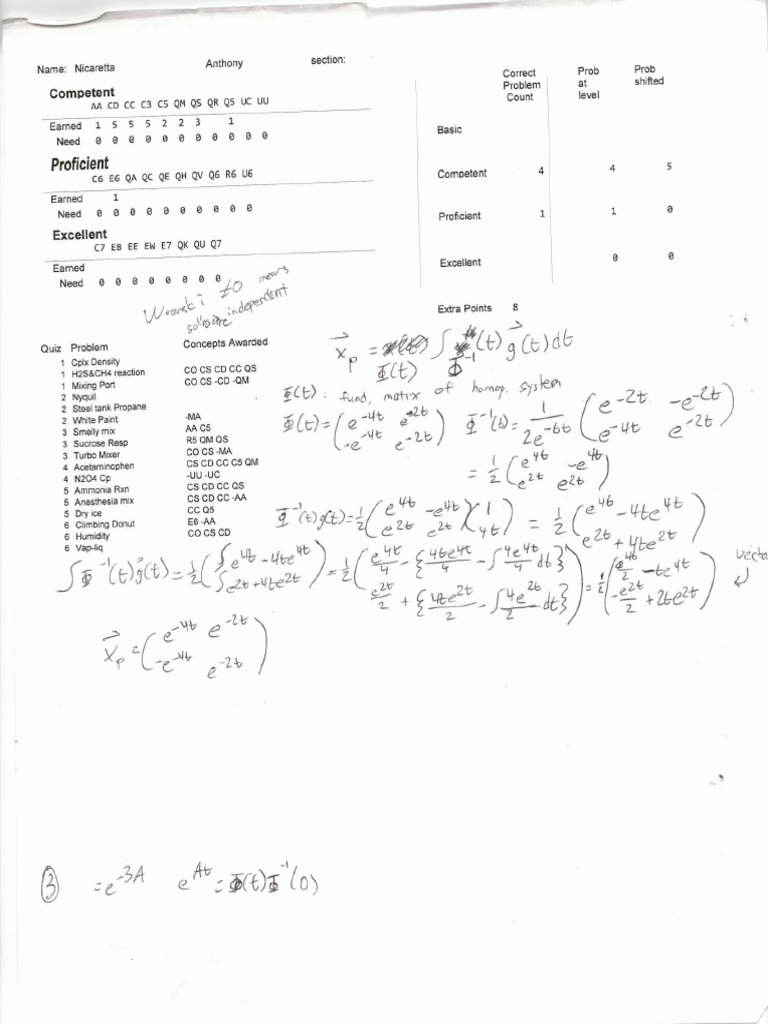 Name: Nicaretta Anthony section:
Competent
AA CD CC C3 C5 QM QS QR Q5 UC UU
Earned 1 5 5 5 2 2 3 1
Need 0 0 0 0 0 0 0 0 0 0 0
Proficient
C6 E6 QA QC QE QH QV Q6 R6 U6
Earned 1
Need 0 0 0 0 0 0 0 0 0 0
Excellent
C7 EB EE EW E7 QK QU Q7
Earned
Need 0 0 0 0 0 0 0 0
Correct Problem Count Prob at level Prob shifted
Basic
Competent 4 4 5
Proficient 1 1 0
Excellent 0 0
Extra Points 8
Wronski ≠0 means
sol'ns are independent
Quiz Problem Concepts Awarded
1 Cplx Density
1 H2S&CH4 reaction CO CS CD CC QS
1 Mixing Port CO CS -CD -QM
2 Nyquil
2 Steel tank Propane
2 White Paint -MA
3 Smelly mix AA C5
3 Sucrose Resp R5 QM QS
3 Turbo Mixer CO CS -MA
4 Acetaminophen CS CD CC C5 QM
4 N2O4 Cp -UU -UC
5 Ammonia Rxn CS CD CC QS
5 Anesthesia mix CS CD CC -AA
5 Dry ice CC Q5
6 Climbing Donut E6 -AA
6 Humidity CO CS CD
6 Vap-liq
x⃗p = Φ(t) ∫ Φ⁻¹(t) g⃗(t)dt
Φ(t): fund, matrix of homog. system
Φ(t) = (e^-4t e^-2t / -e^-4t e^-2t) Φ⁻¹(t) = 1/2e^-6t (e^-2t -e^-2t / e^-4t e^-2t)
= 1/2 (e^4t -e^4t / e^2t e^2t)
Φ⁻¹(t)g(t) = 1/2 (e^4t -e^4t / e^2t e^2t)(1 / 4t) = 1/2 (e^4t - 4te^4t / e^2t + 4te^2t)
∫Φ⁻¹(t)g⃗(t) = 1/2 (∫e^4t - 4te^4t / ∫e^2t + 4te^2t) = 1/2 (e^4t/4 - {4te^4t/4 - ∫4e^4t/4 dt} / e^2t/2 + {4te^2t/2 - ∫4e^2t/2 dt}) = 1/2 (e^4t/2 - te^4t / -e^2t/2 + 2te^2t) vector
x⃗p = (e^-4t e^-2t / -e^-4t e^-2t)
③ = e^-3A e^At = Φ(t)Φ⁻¹(0)